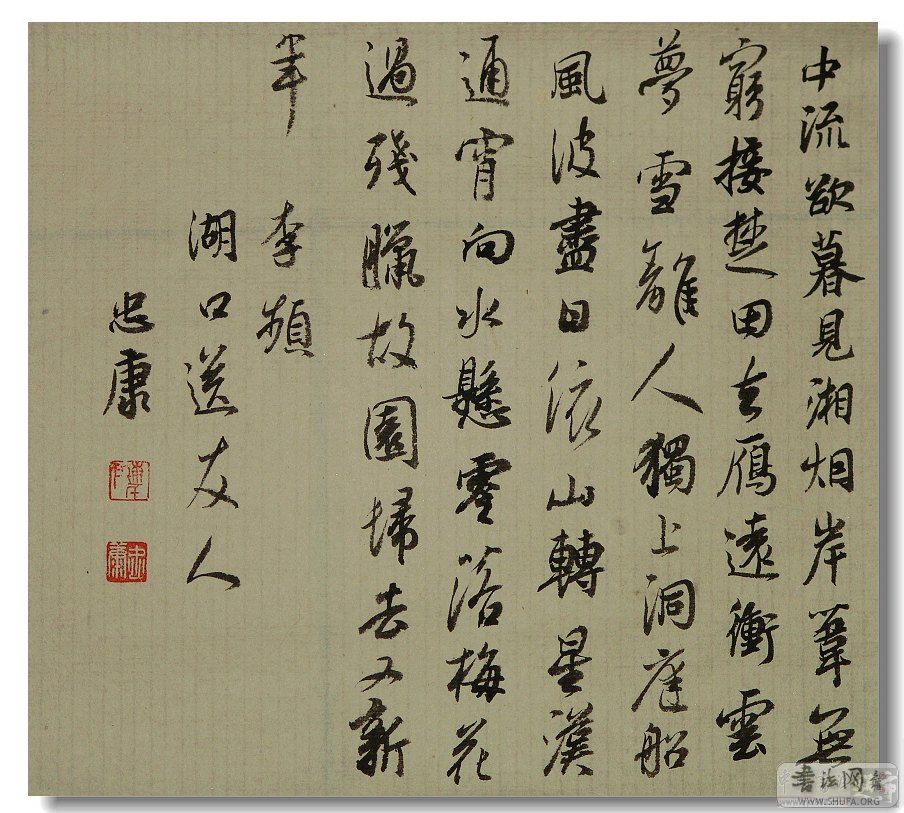 中流欲暮見湘烟岸葦無
窮接楚田去雁遠衝雲
夢雪離人獨上洞庭船
風波盡日依山轉星漢
通宵向水懸零落梅花
過殘臘故園歸去又新
年 李頻
湖口送友人
忠康
書法网
WWW.SHUFA.ORG